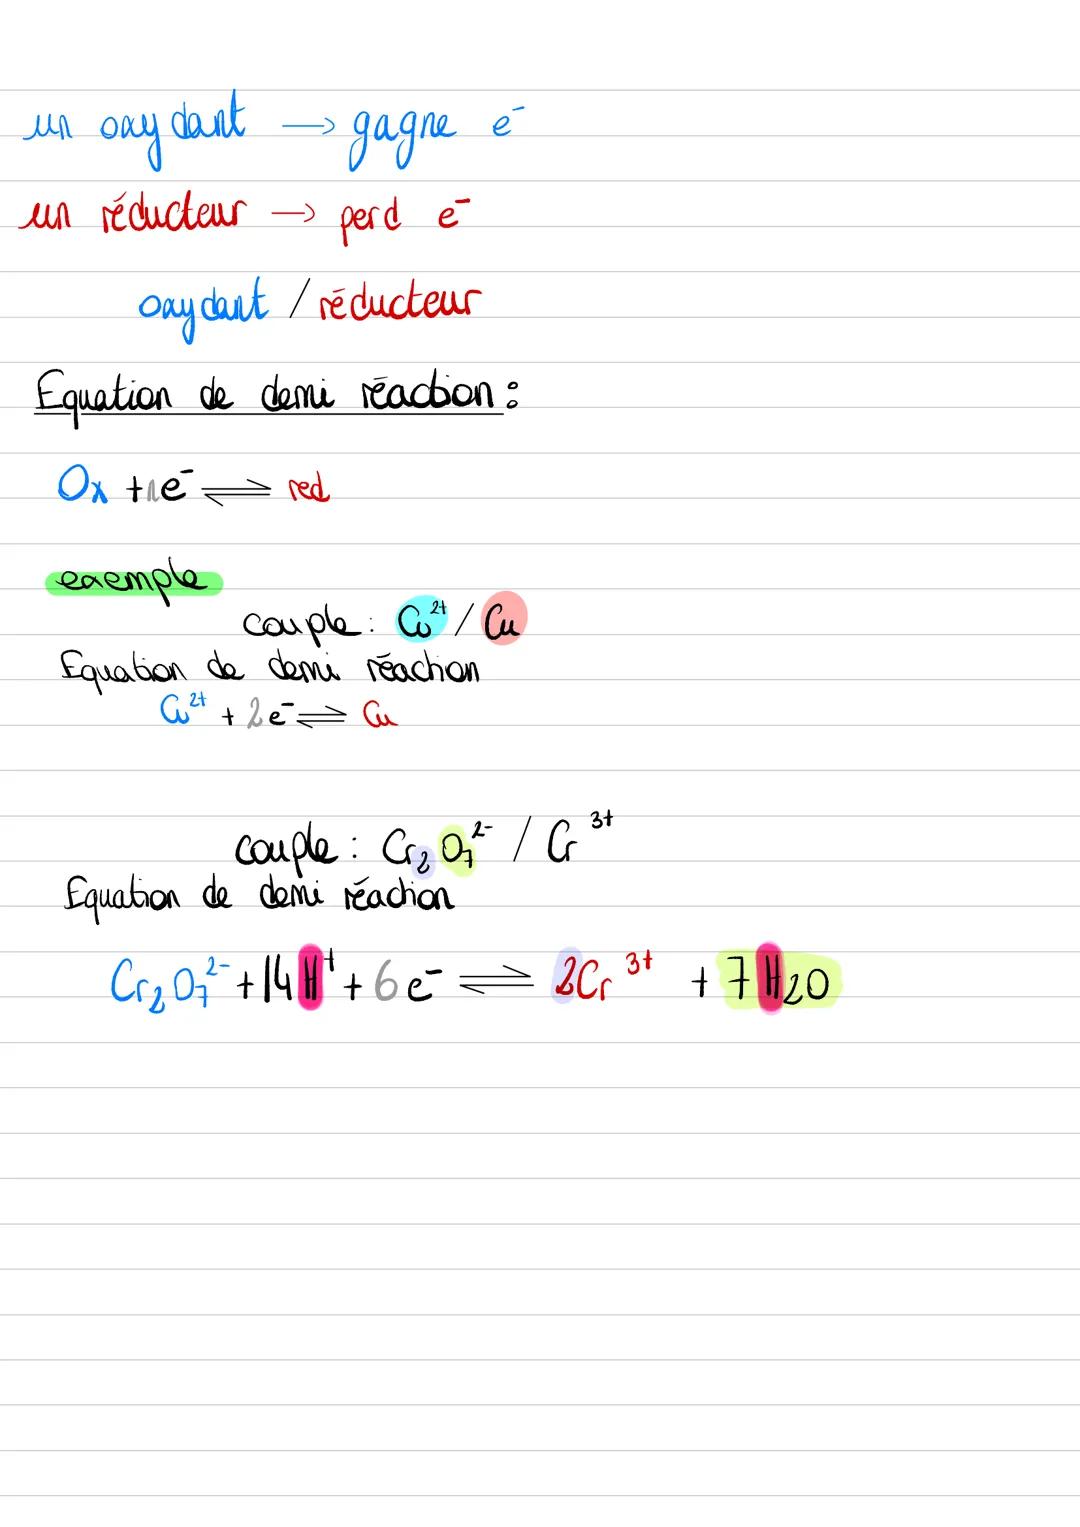 un oxydant → gagne e⁻
un réducteur → perd e⁻
oxydant / réducteur
Equation de demi réaction :
Ox + ne⁻ ⇌ red
exemple
couple : Cu²⁺ / Cu
Equation de demi réaction
Cu²⁺ + 2e⁻ ⇌ Cu
couple : Cr₂O₇²⁻ / Cr³⁺
Equation de demi réaction
Cr₂O₇²⁻ + 14H⁺ + 6e⁻ ⇌ 2Cr³⁺ + 7H₂O